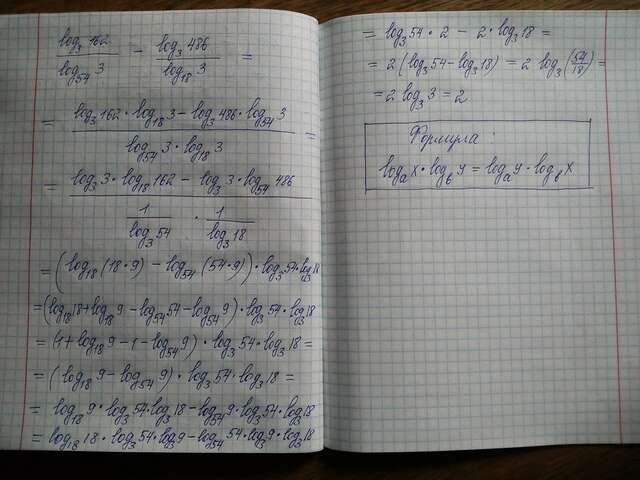 log₃162/log₅₄3 − log₃486/log₁₈3 =
= (log₃162 · log₁₈3 − log₃486 · log₅₄3)/(log₅₄3 · log₁₈3) =
= (log₃3 · log₁₈162 − log₃3 · log₅₄486)/(1/log₃54 · 1/log₃18)
= (log₁₈(18·9) − log₅₄(54·9)) · log₃54 · log₃18
= (log₁₈18 + log₁₈9 − log₅₄54 − log₅₄9) · log₃54 · log₃18
= (1 + log₁₈9 − 1 − log₅₄9) · log₃54 · log₃18 =
= (log₁₈9 − log₅₄9) · log₃54 · log₃18 =
= log₁₈9 · log₃54 · log₃18 − log₅₄9 · log₃54 · log₃18
= log₁₈18 · log₃54 · log₃9 − log₅₄54 · log₃9 · log₃18
= log₃54 · 2 − 2 · log₃18 =
= 2(log₃54 − log₃18) = 2 log₃(54/18) =
= 2 log₃3 = 2
Формула:
logₐx · log_b y = logₐy · log_b x